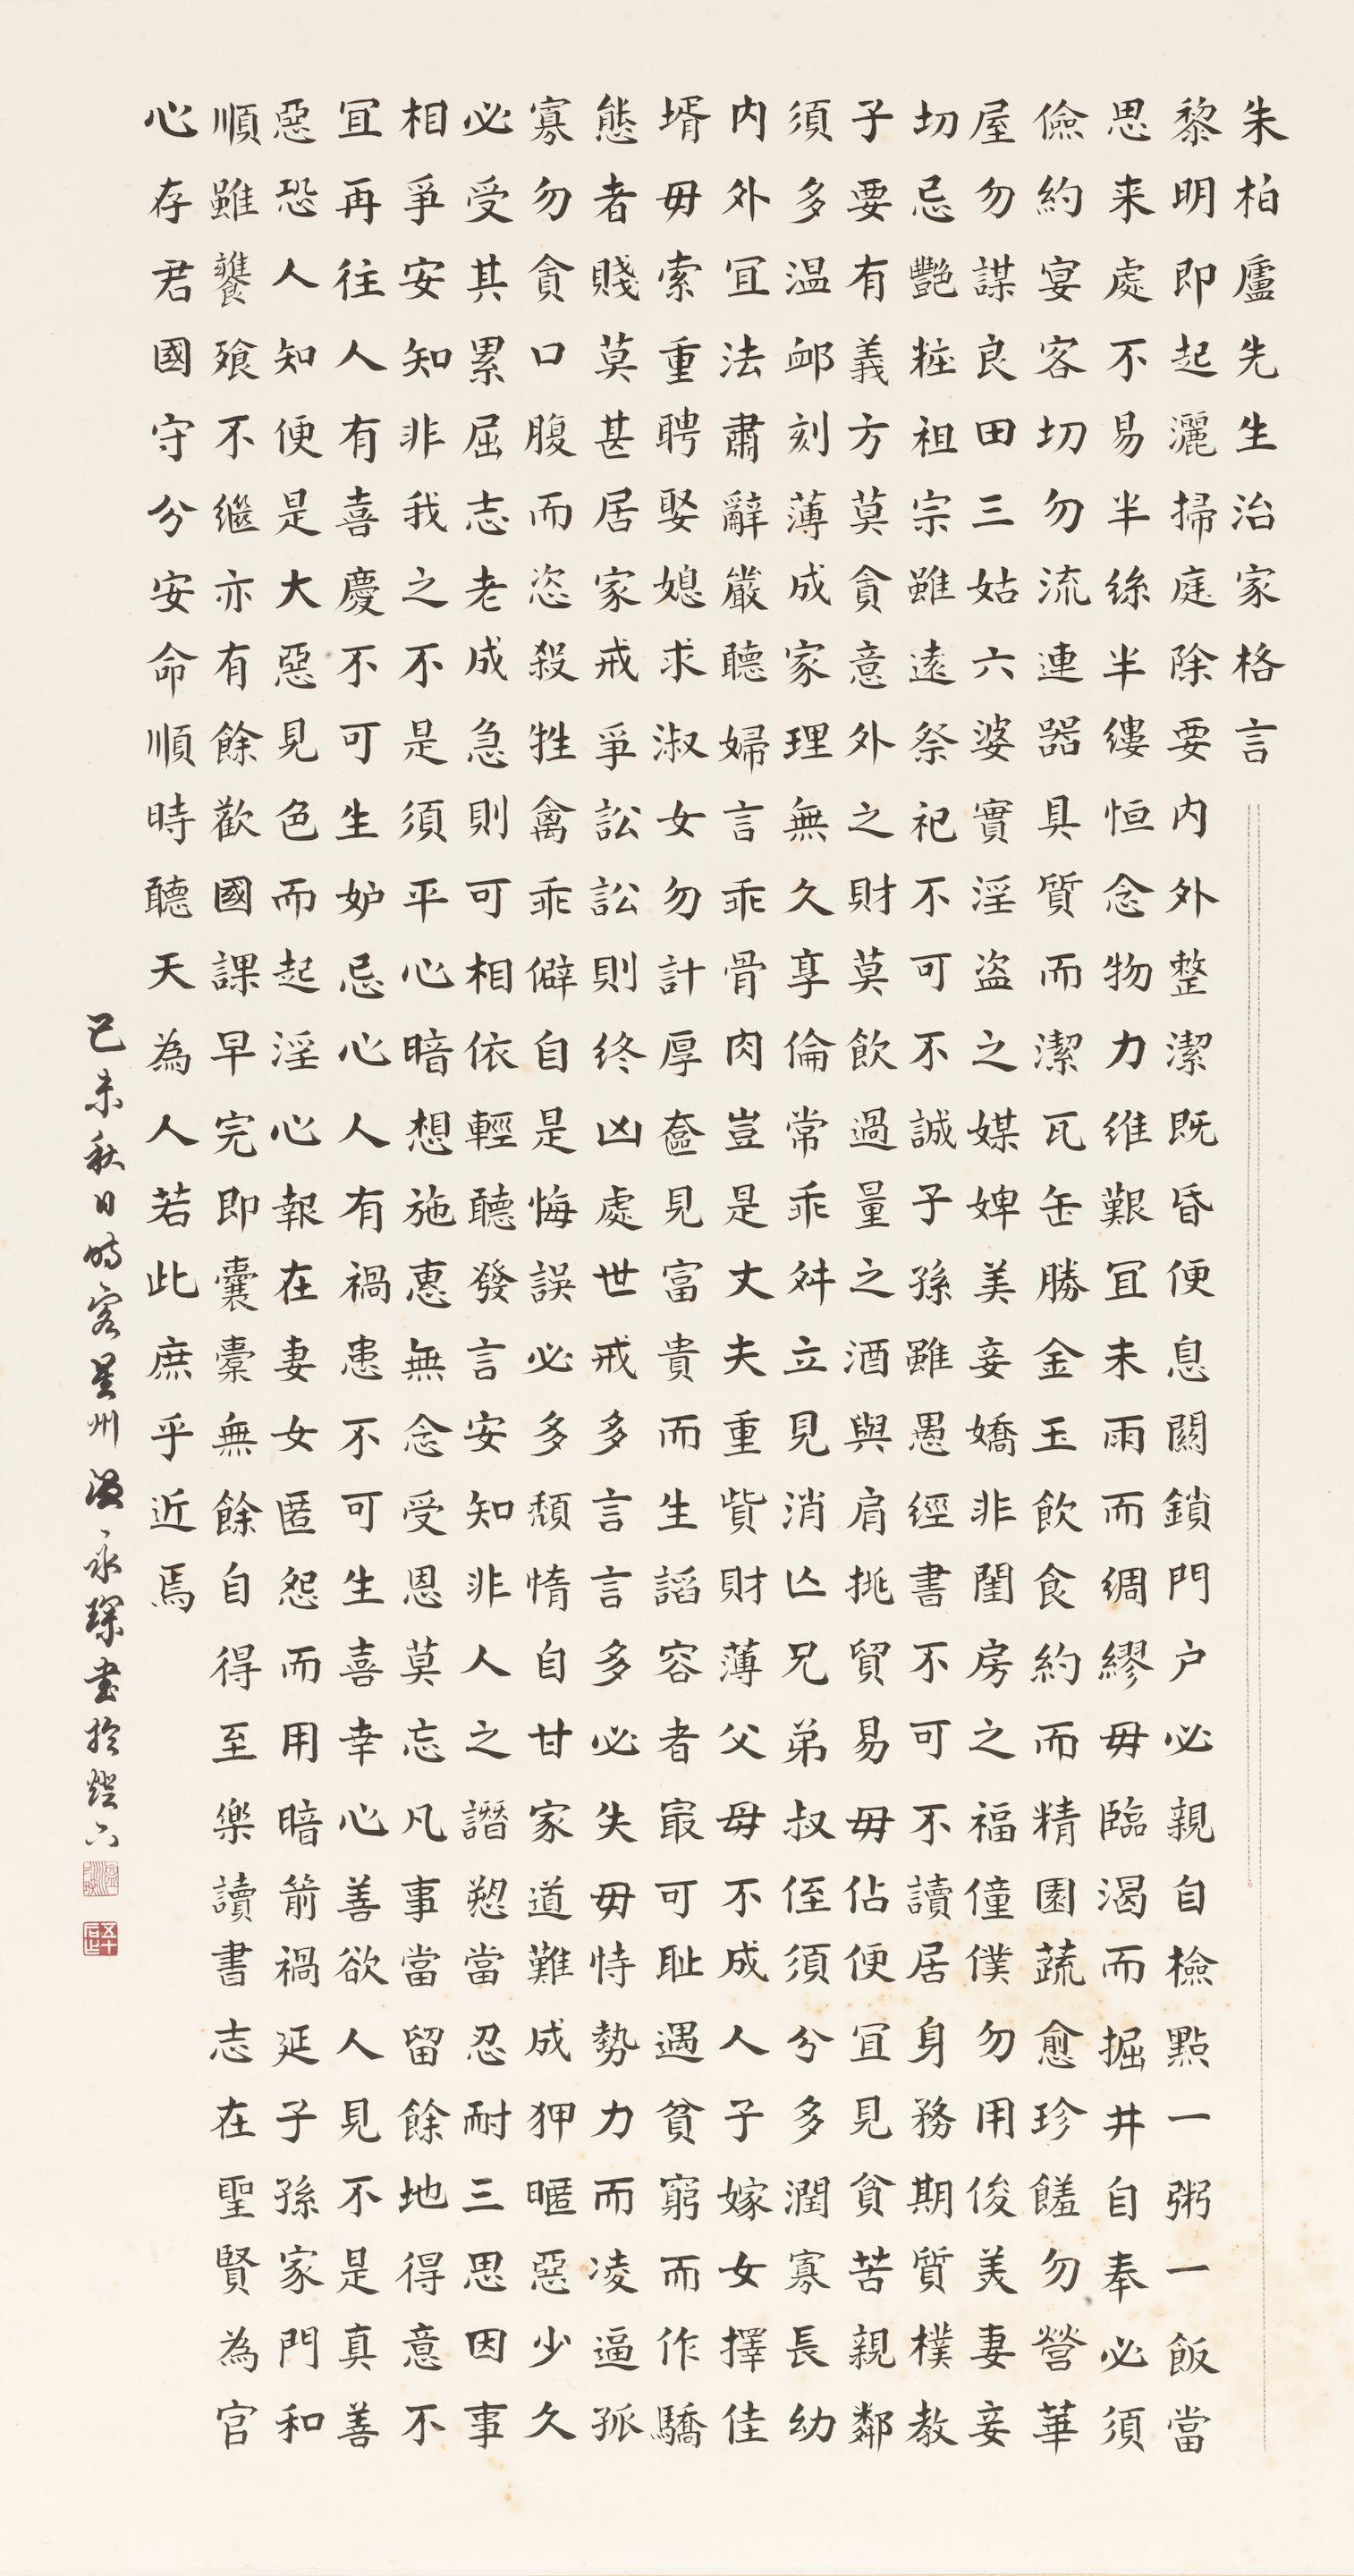 朱柏廬先生治家格言
黎明即起灑掃庭除要内外整潔既昏便息關鎖門户必親自檢點一粥一飯當
思来處不易半絲半縷恒念物力維艱宜未雨而綢繆毋臨渴而掘井自奉必須
儉約宴客切勿流連器具質而潔瓦缶勝金玉飲食約而精園蔬愈珍饈勿營華
屋勿謀良田三姑六婆實淫盗之媒婢美妾嬌非閨房之福僮僕勿用俊美妻妾
切忌艷粧祖宗雖遠祭祀不可不誠子孫雖愚經書不可不讀居身務期質樸教
子要有義方莫貪意外之財莫飲過量之酒與肩挑貿易毋佔便宜見貧苦親鄰
須多温卹刻薄成家理無久享倫常乖舛立見消亡兄弟叔侄須分多潤寡長幼
内外宜法肅辭嚴聽婦言乖骨肉豈是丈夫重貲財薄父母不成人子嫁女擇佳
壻毋索重聘娶媳求淑女勿計厚奩見富貴而生諂容者最可耻遇貧窮而作驕
態者賤莫甚居家戒爭訟訟則终凶處世戒多言言多必失毋恃勢力而凌逼孤
寡勿貪口腹而恣殺牲禽乖僻自是悔誤必多頹惰自甘家道難成狎暱惡少久
必受其累屈志老成急則可相依輕聽發言安知非人之譖愬當忍耐三思因事
相爭安知非我之不是須平心暗想施惠無念受恩莫忘凡事當留餘地得意不
宜再往人有喜慶不可生妒忌心人有禍患不可生喜幸心善欲人見不是真善
惡恐人知便是大惡見色而起淫心報在妻女匿怨而用暗箭禍延子孫家門和
順雖饔飧不繼亦有餘歡國課早完即囊橐無餘自得至樂讀書志在聖賢為官
心存君國守分安命順時聽天為人若此庶乎近焉
己未秋日時客星州溫永琛書於燈下